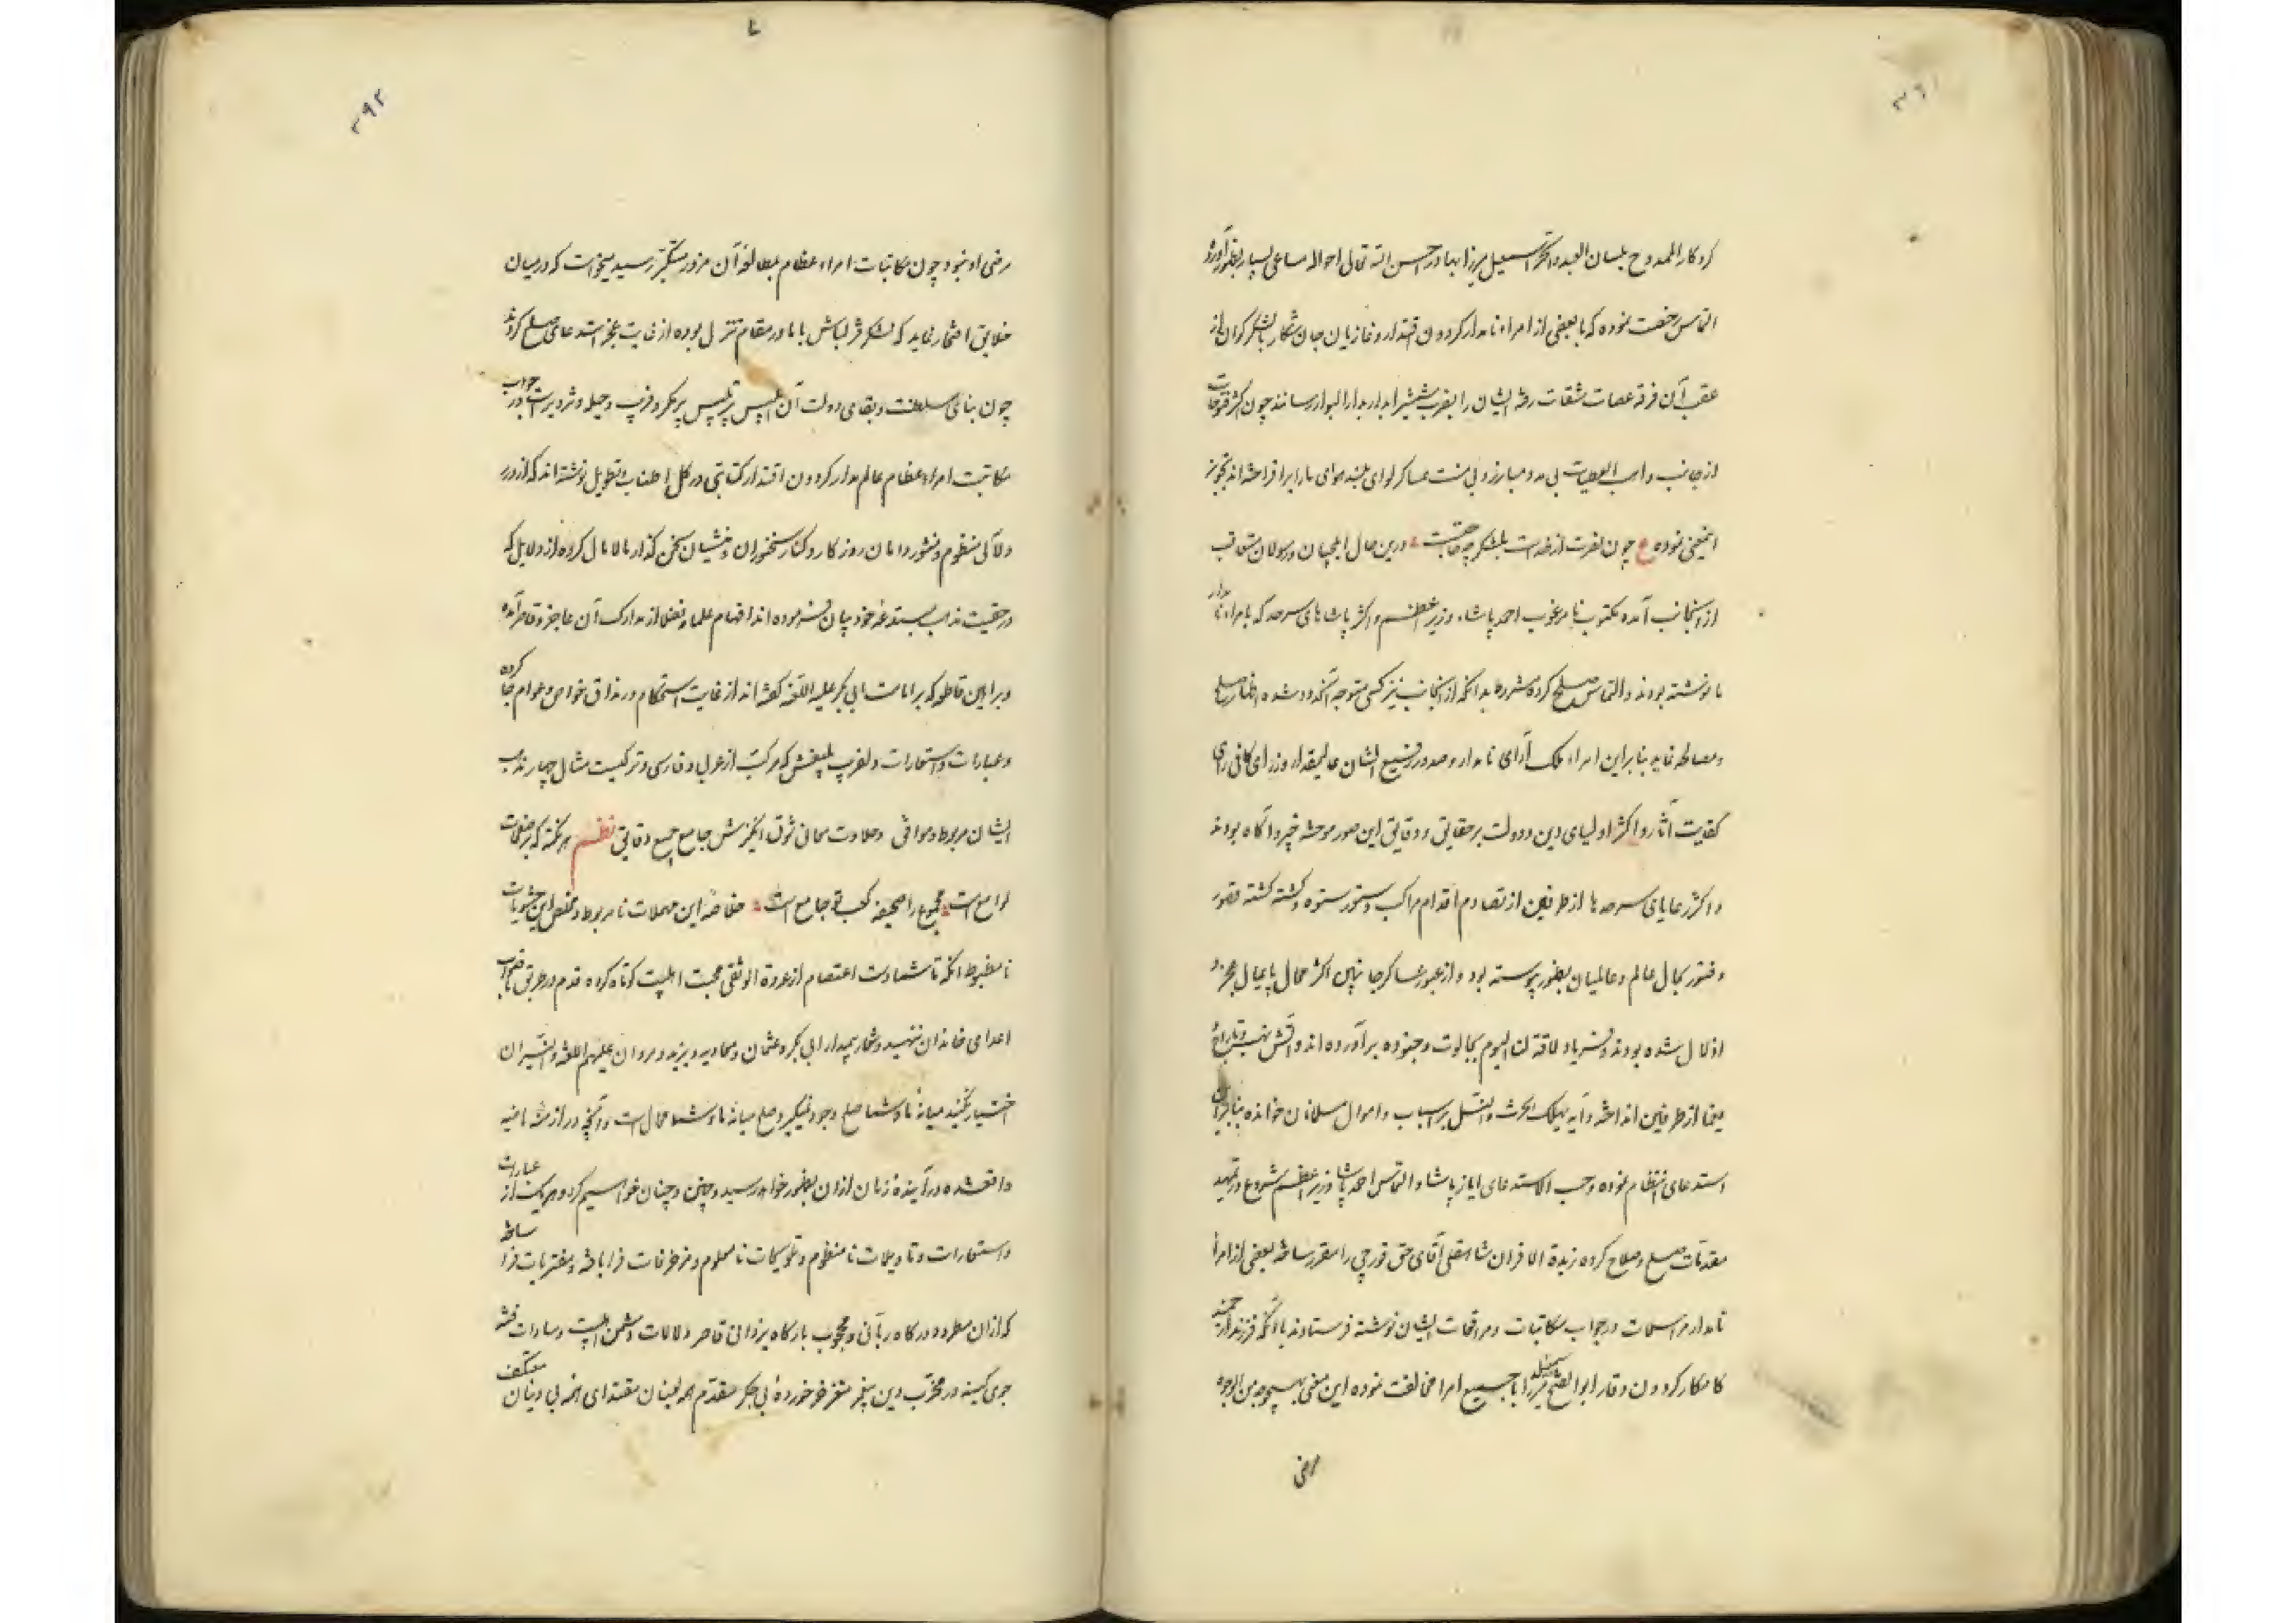 ۳۹۱
کردکار الممدوح بلسان العبد والحر اسمعیل میرزا بهادر احسن الله تعالی احواله مساعی بسیار بظهور آورده
التماس رخصت نموده که با بعضی از امراء نامدار کردون اقتدار و غازیان جان شکار با لشکر کران از
عقب آن فرقه عصات شقات رفته ایشان را بضرب شمشیر ابدار بدار البوار رسانند چون اکثر فتوحات
از جانب واهب العطیات بی مدد مبارز و بی منت عساکر لوای بلند هوای ما را برافراخته اند تجویز
اینمعنی نموده ع چون نصرت از خداست بلشکر چه حاجتست درین حال ایلچیان و رسولان متعاقب
از آنجانب آمده مکتوب نامرغوب احمد پاشاء وزیر اعظم و اکثر پاشاهای سرحد که بامراء نامدار
ما نوشته بودند و التماس صلح کرده مشروط بدانکه از اینجانب نیز کسی متوجه آنحدود شده اظهار صلح
و مصالحه نماید بنابراین امراء ملک آرای نامدار و صدور رفیع الشان عالیمقدار وزرای کافی رای
کفایت آثار و اکثر اولیای دین و دولت بر حقایق و دقایق این صور موحشه خبیر و آکاه بودند
و اکثر رعایای سرحدها از طرفین از تصادم اقدام مراکب و ستور ستوه و کشته کشته قصور
و فتور بحال عالم و عالمیان بظهور پیوسته بود و از عبور عساکر جانبین اکثر محال پایمال عجز و
اذلال شده بودند و فریاد لا طاقة لنا الیوم بجالوت و جنوده برآورده اند و آتش نهب و تاراج
یغما از طرفین انداخته و آیه یهلک الحرث والنسل بر اسباب و اموال مسلمانان خوانده بنابرآن
استدعای انتظام نموده و حسب الاستدعای ایاز پاشا و التماس احمد پاشا وزیر اعظم شروع در تمهید
مقدمات صلح و صلاح کرده زبدة الاقران شاهقلی آقای حق قورچی را مقرر ساخته بعضی از امرأ
نامدار مراسلات در جواب مکاتبات و مرافعات ایشان نوشته فرستادند با آنکه فرزند ارجمند
کامکار کردون وقار ابوالفتح اسمعیل میرزا با جمیع امرا مخالفت نموده این معنی بهیچوجه من الوجوه
مرضی
۳۹۲
مرضی او نبود چون مکاتبات امراء عظام بمطالعه آن مزور متکبر رسید میخواست که در میان
خلایق افتخار نماید که لشکر قزلباش با ما در مقام تنزل بوده از غایت عجز استدعای صلح کردند
چون بنای سلطنت و بقای دولت آن ابلیس پرتلبیس پر مکر و فریب و حیله و تزویر است در جواب
مکاتبت امراء عظام عالم مدار کردون اقتدار کتابتی در کل اطناب و تطویل نوشته اند که از درر
و لآلی منظوم و منثور دامان روزکار و کنار سخنوران و منشیان سخن کذار مالامال کرده از دلایل که
در حقیت مذهب مبتدعه خود بیان فرموده اند افهام علما و فضلا از مدارک آن عاجز و قاصر آمده
و براهین قاطعه که بر امامت ابی بکر علیه اللعنه کفته اند از غایت استحکام در مذاق خواص و عوام جا کرده
و عبارات و استعارات دلفریب بلیغش که مرکب از عربی و فارسی و ترکیست مثال چهار مذهب
ایشان مربوط و موافق و حلاوت معانی شوق انکیزش جامع جمیع دقایق نظم هر نکته که در صفحات
لوامع است مجموع را صحیفه کتب تو جامع است خلاصه این مهملات نامربوط و ملخص این حشویات
نامضبوط آنکه تا شما دست اعتصام از عروة الوثقی محبت اهلبیت کوتاه کرده قدم در طریق ناصواب
اعدای خاندان ننهید و شعار بیمدار ابی بکر و عثمان و معاویه و یزید و مروان علیهم اللعنه والنیران
اختیار نکنید میانه ما و شما صلح وجود نمیکیرد و صلح میانه ما و شما محال است و آنچه در ازمنه ماضیه
واقعشده در آینده زمان ازان بظهور خواهد رسید و چنین و چنان خواهیم کرد و هر یک از عبارات
و استعارات و تاویلات نامنظوم و تلویحات نامعلوم و مزخرفات فرا بافته و مفتریات فرا ساخته
که ازان مطرود درکاه ربانی و محجوب بارکاه یزدانی قاصر دلالات دشمن اهلبیت و سادات فتنه
جوی کینه ور مخرب دین پیغمبر مغز خر خوردهٔ بی جکر مقدم همه لعینان مقتدای همه بی دینان معتکف